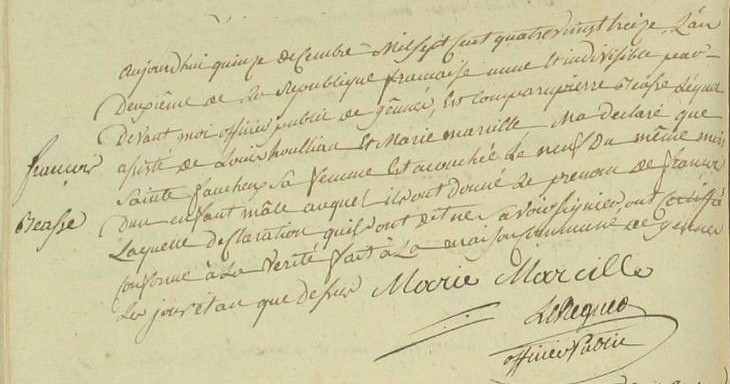 aujourdhui quinze decembre Mil sept cent quatrevingt treize, L'an
Deuxième de La Republique francaise unne Et indivisible par-
Devant moi officier public de gênnés, Est Comparu pierre
asisté de Louis houlliau Et Marie marcille Ma declaré que
Sainte faucheux Sa femme Est acouchée Le neuf Du même mois
Dun enfant mâle auquel ils ont Donné Le prenom de françois
Laquelle declaration quils ont dit ne Savoir Signier ont Certiffié
Conforme à La Verité fait à La maison Commune de gennes
Les jour et an que dessus
françois
Marie Marcille
officier Public